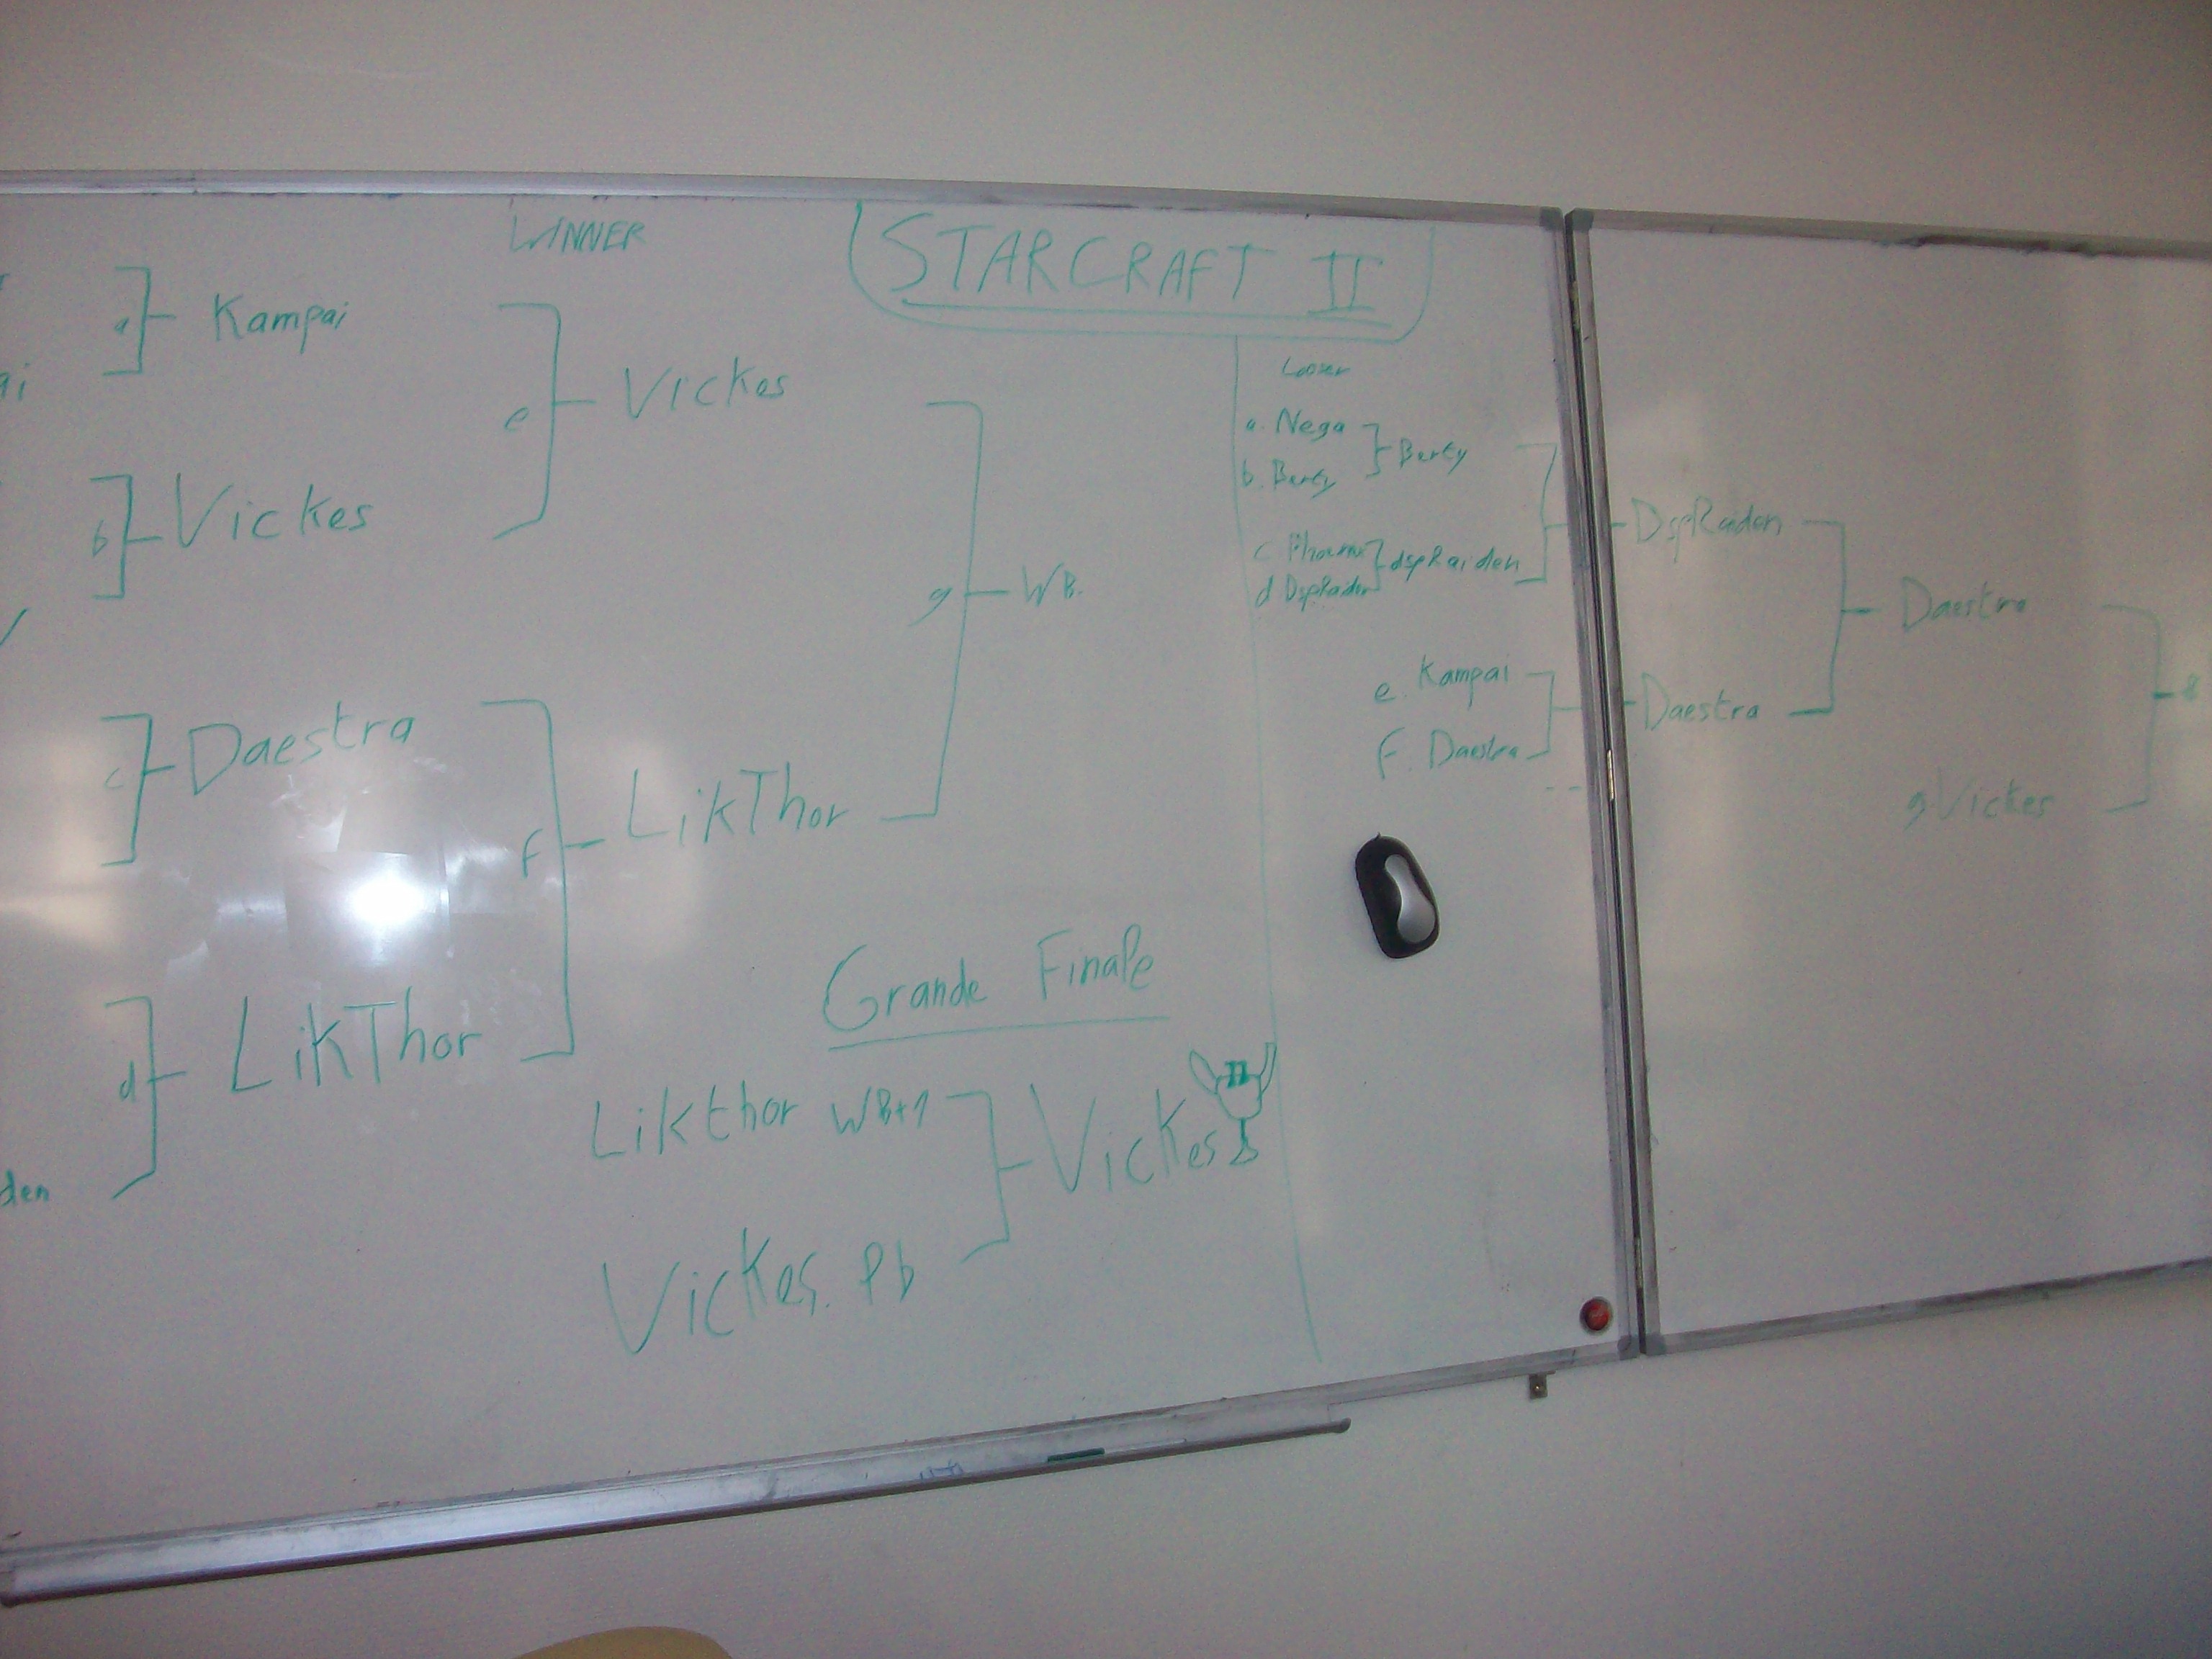 WINNER
STARCRAFT II
a
Kampai
ai
e
Vickes
b
Vickes
g
WB.
c
Daestra
f
LikThor
d
LikThor
den
Grande Finale
Likthor WB+1
Vickes
Vickes. Pb
Looser
a. Nega
b. Berty
Berty
c
d DspRaiden
dspRaiden
e. Kampai
f. Daestra
DspRaiden
Daestra
Daestra
g. Vickes